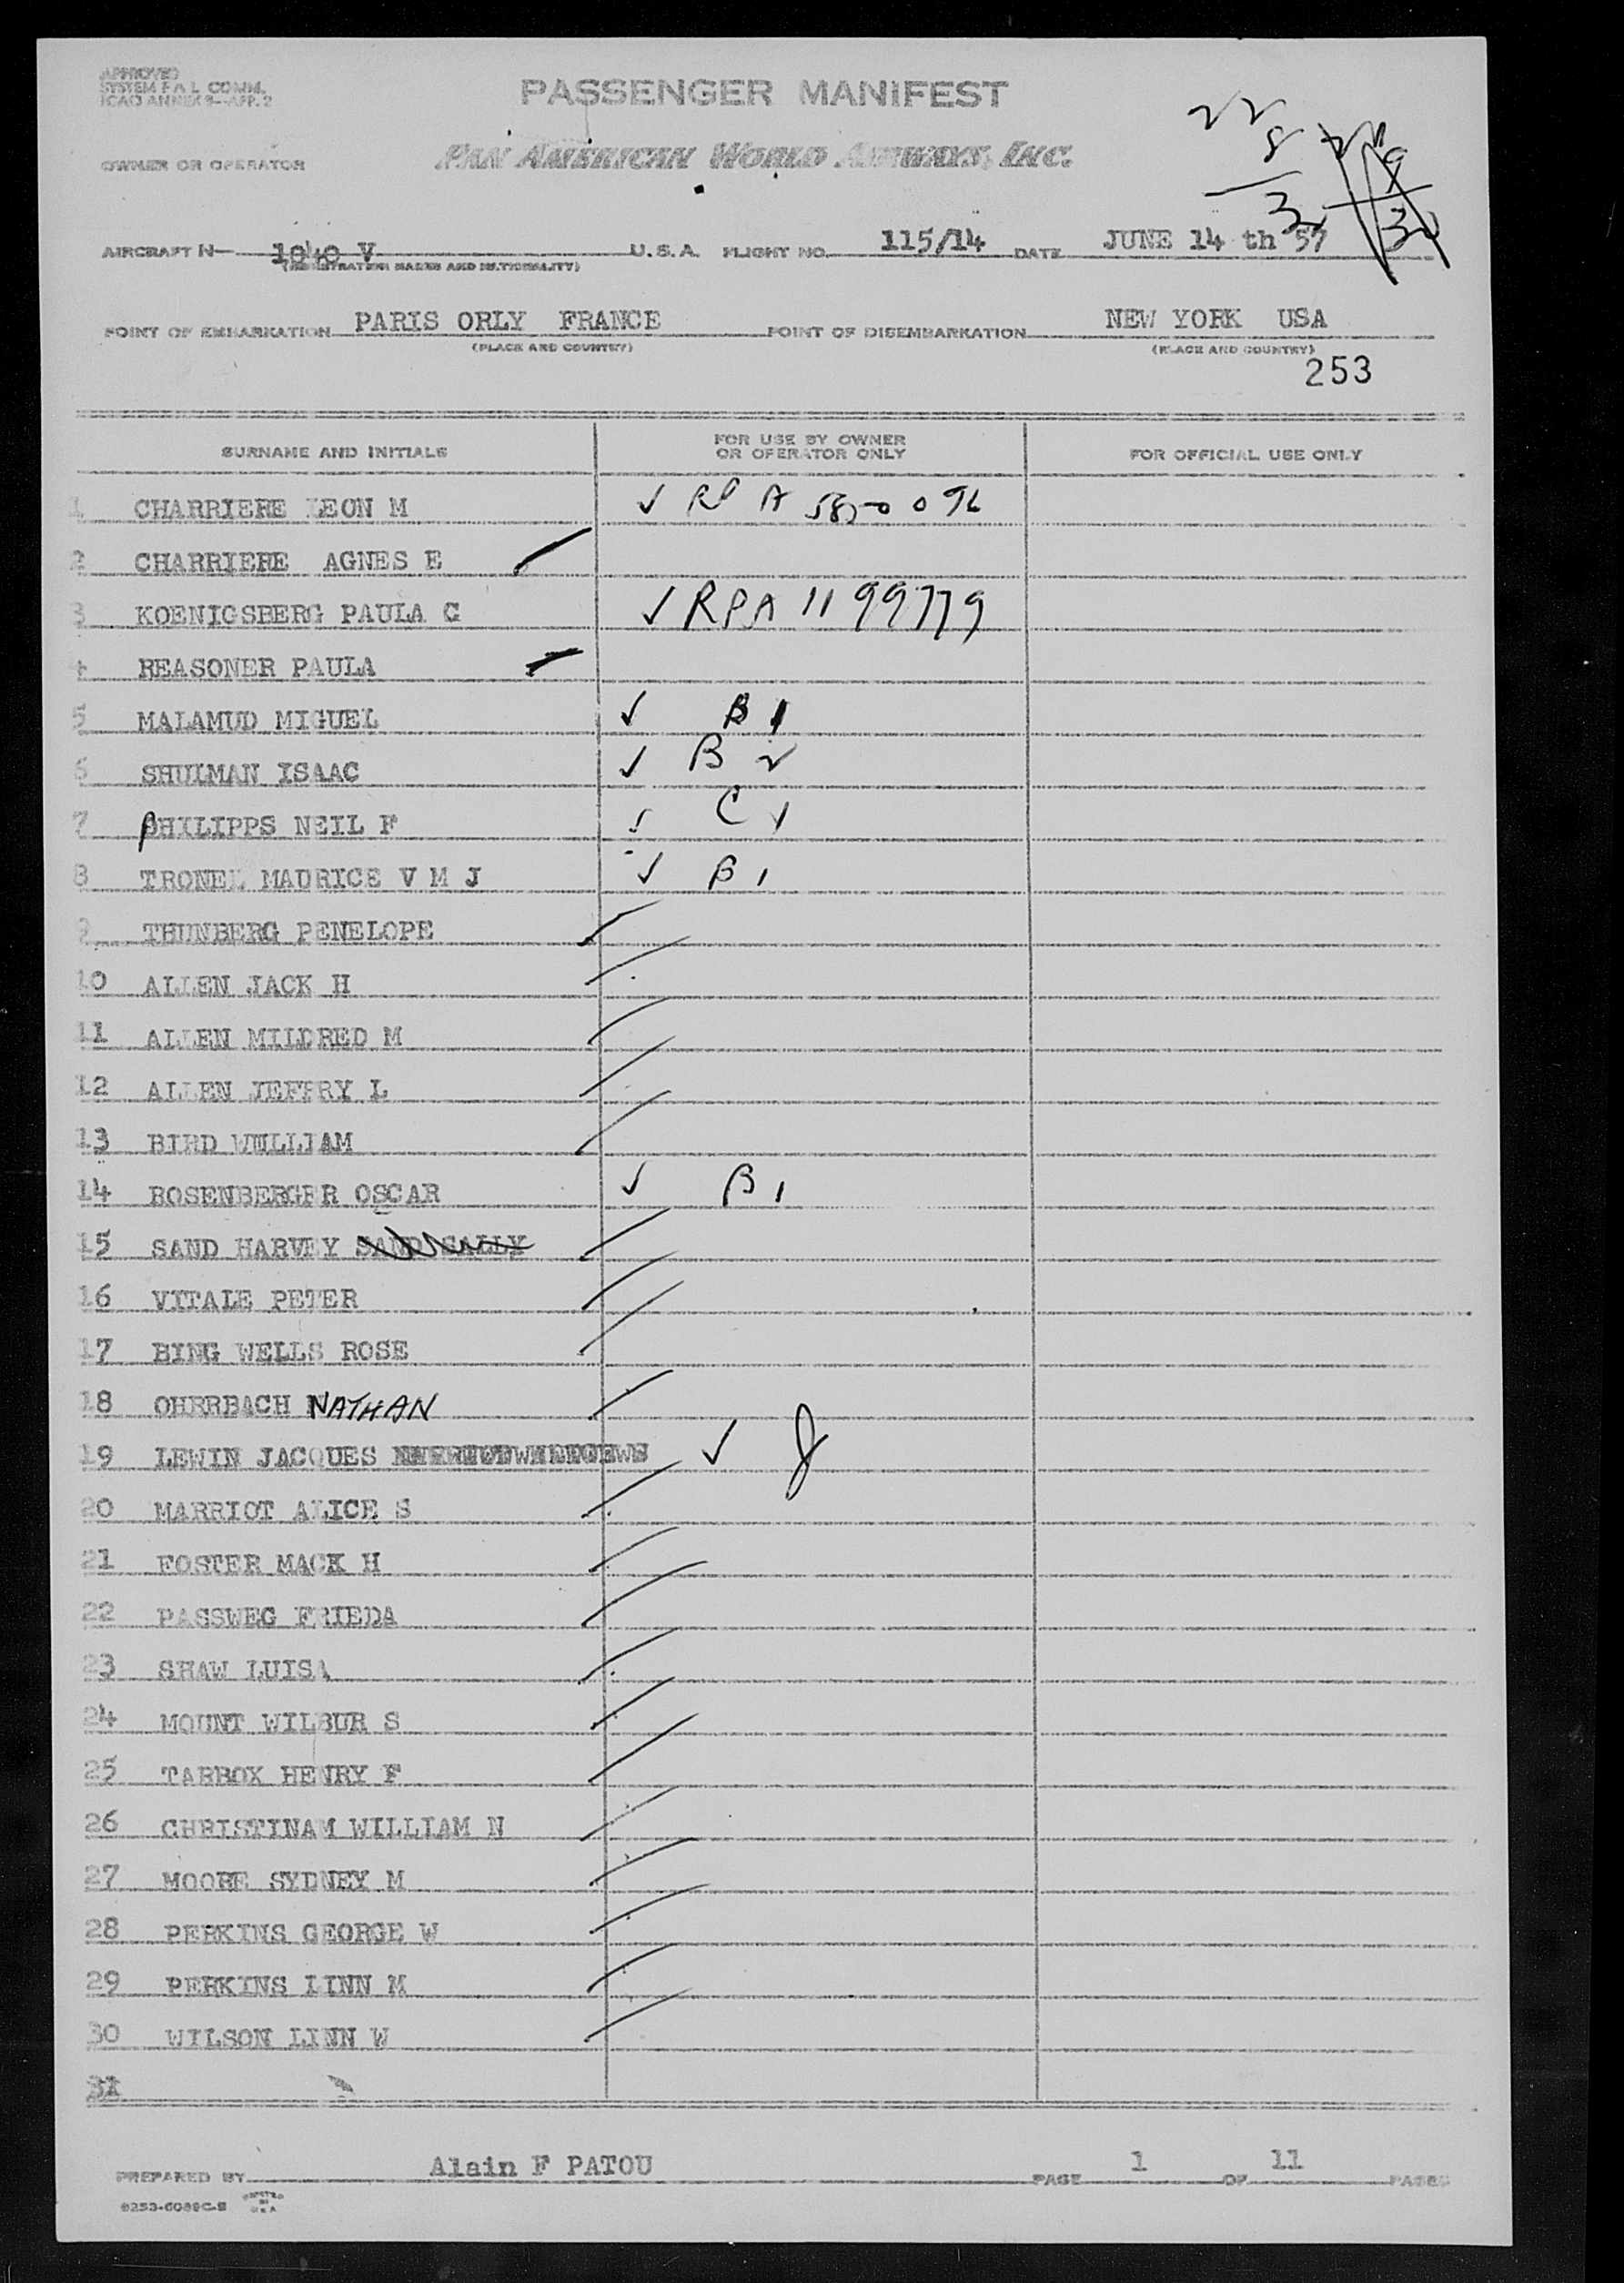 APPROVED
SYSTEM F A L COMM.
ICAO ANNEX 9--APP. 2
PASSENGER MANIFEST
OWNER OR OPERATOR PAN AMERICAN WORLD AIRWAYS, INC.
22
8
AIRCRAFT N- 1040 V U.S.A. FLIGHT NO. 115/14 DATE JUNE 14 th 57
(REGISTRATION MARKS AND NATIONALITY)
POINT OF EMBARKATION PARIS ORLY FRANCE POINT OF DISEMBARKATION NEW YORK USA
(PLACE AND COUNTRY) (PLACE AND COUNTRY)
253
SURNAME AND INITIALS FOR USE BY OWNER OR OPERATOR ONLY FOR OFFICIAL USE ONLY
1 CHARRIERE LEON M ✓ RP A
2 CHARRIERE AGNES E
3 KOENIGSBERG PAULA G ✓ RPA 11 99779
4 REASONER PAULA
5 MALAMUD MIGUEL ✓ B 1
6 SHULMAN ISAAC ✓ B 2
7 PHILIPPS NEIL F C 1
8 TRONEL MAURICE V M J ✓ B 1
9 THUNBERG PENELOPE
10 ALLEN JACK H
11 ALLEN MILDRED M
12 ALLEN JEFFRY L
13 BIRD WULLIAM
14 ROSENBERGER OSCAR ✓ B 1
15 SAND HARVEY SAND SALLY
16 VITALE PETER
17 BING WELLS ROSE
18 OHRRBACH NATHAN
19 LEWIN JACQUES ✓
20 MARRIOT ALICE S
21 FOSTER MACK H
22 PASSWEG FRIEDA
23 SHAW LUISA
24 MOUNT WILBUR S
25 TARBOX HENRY F
26 CHRISTINAM WILLIAM N
27 MOORE SYDNEY M
28 PERKINS GEORGE W
29 PERKINS LINN M
30 WILSON LINN W
31
PREPARED BY Alain F PATOU PAGE 1 OF 11 PAGES